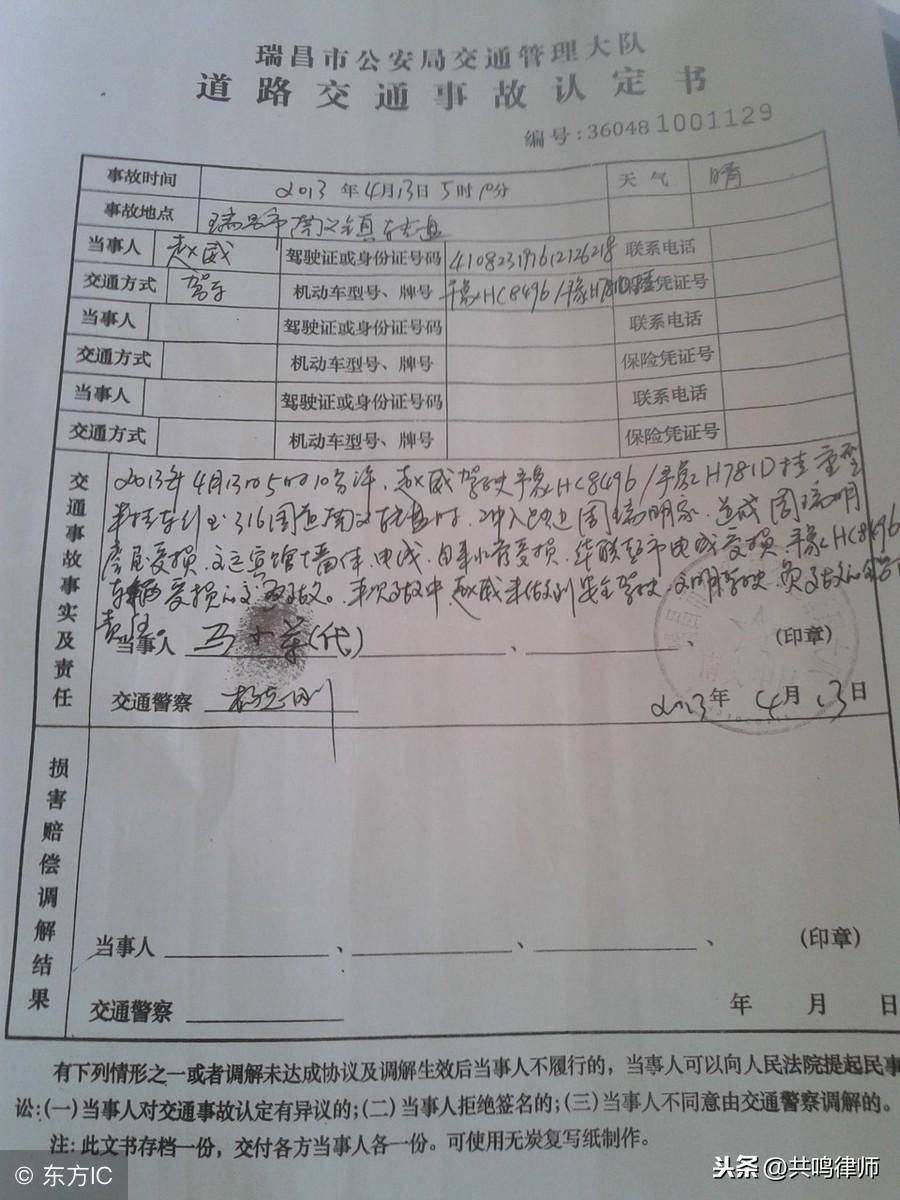 瑞昌市公安局交通管理大队
道路交通事故认定书
编号:360481001129
事故时间 2013年4月13日5时10分 天气 晴
事故地点 瑞昌市南义镇转盘
当事人 赵威 驾驶证或身份证号码 410823197612126218 联系电话
交通方式 驾车 机动车型号、牌号 豫HC8496/豫H781D挂 保险凭证号
当事人 驾驶证或身份证号码 联系电话
交通方式 机动车型号、牌号 保险凭证号
当事人 驾驶证或身份证号码 联系电话
交通方式 机动车型号、牌号 保险凭证号
交通事故事实及责任
2013年4月13日5时10分许,赵威驾驶豫HC8496/豫H781D挂重型
半挂车行至316国道南义转盘时,冲入路边周瑞明家,造成周瑞明
房屋受损,文运宾馆墙体、电线、自来水管受损,华联超市电线受损,豫HC8496
车辆受损的交通事故。本次事故中,赵威未做到安全驾驶、文明驾驶,负事故的全部
责任
当事人 马小菜(代)、 、 、 (印章)
交通警察 2013年4月13日
损害赔偿调解结果
当事人 、 、 、 (印章)
交通警察 年 月 日
有下列情形之一或者调解未达成协议及调解生效后当事人不履行的,当事人可以向人民法院提起民事
讼:(一)当事人对交通事故认定有异议的;(二)当事人拒绝签名的;(三)当事人不同意由交通警察调解的。
注:此文书存档一份,交付各方当事人各一份。可使用无炭复写纸制作。
© 东方IC
头条@共鸣律师